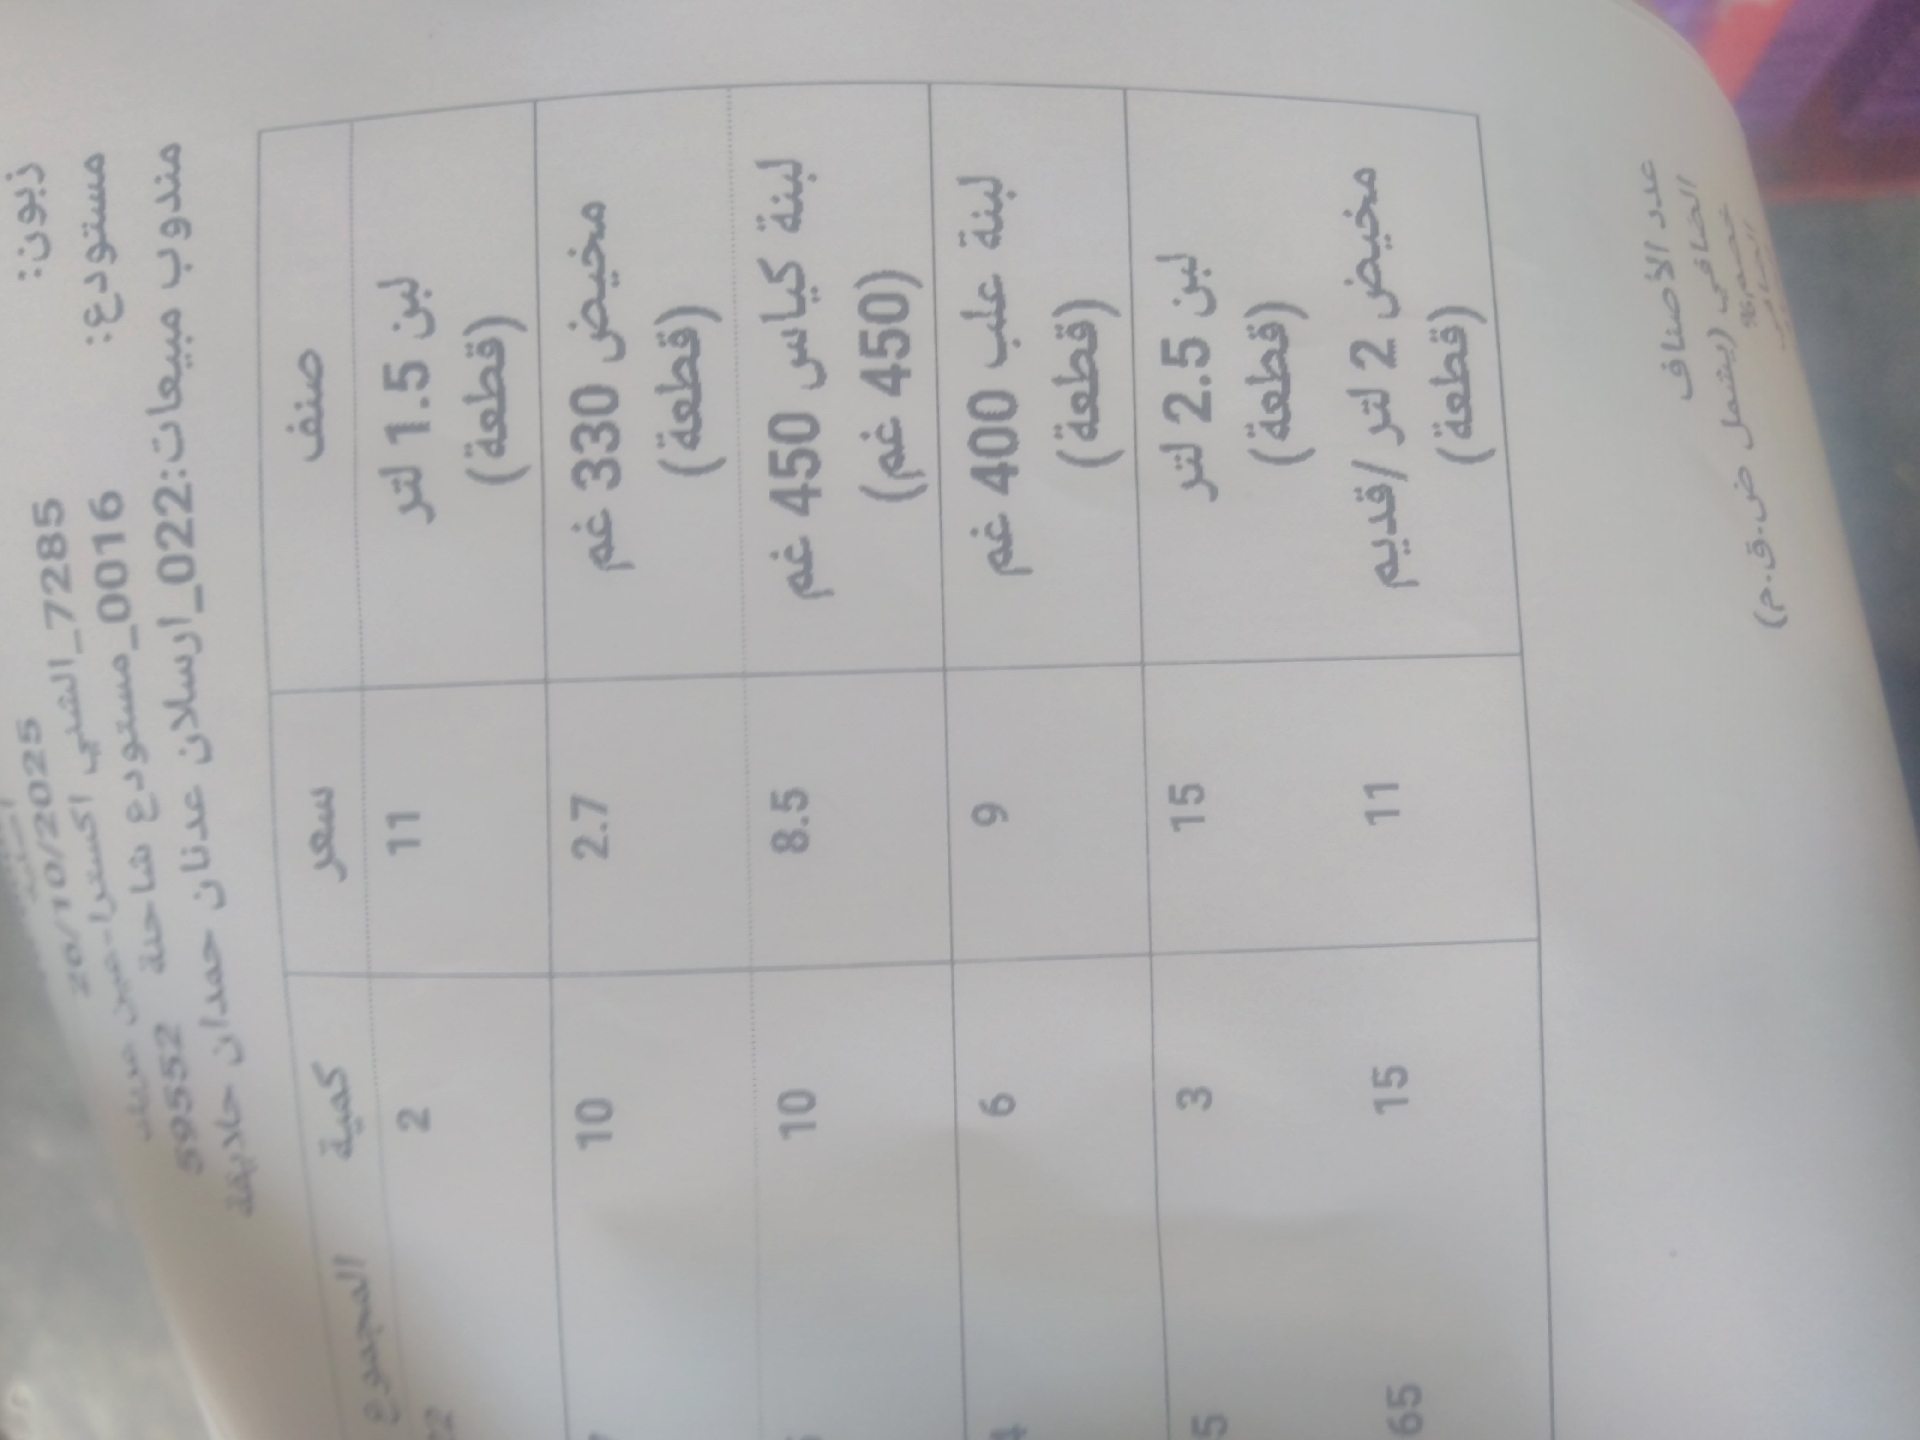 20/10/2025
زبون: 7285_الشلبي اكسترا-
مستودع: 0016_مستودع شاحنة 59552
مندوب مبيعات:022_ارسلان عدنان حمدان حلايقة
صنف سعر كمية المجموع
لبن 1.5 لتر 11 2
(قطعة)
مخيض 330 غم 2.7 10
(قطعة)
لبنة كياس 450 غم 8.5 10
(450 غم)
لبنة علب 400 غم 9 6
(قطعة)
لبن 2.5 لتر 15 3
(قطعة)
مخيض 2 لتر /قديم 11 15 65
(قطعة)
عدد الأصناف
(يشمل ض.ق.م)